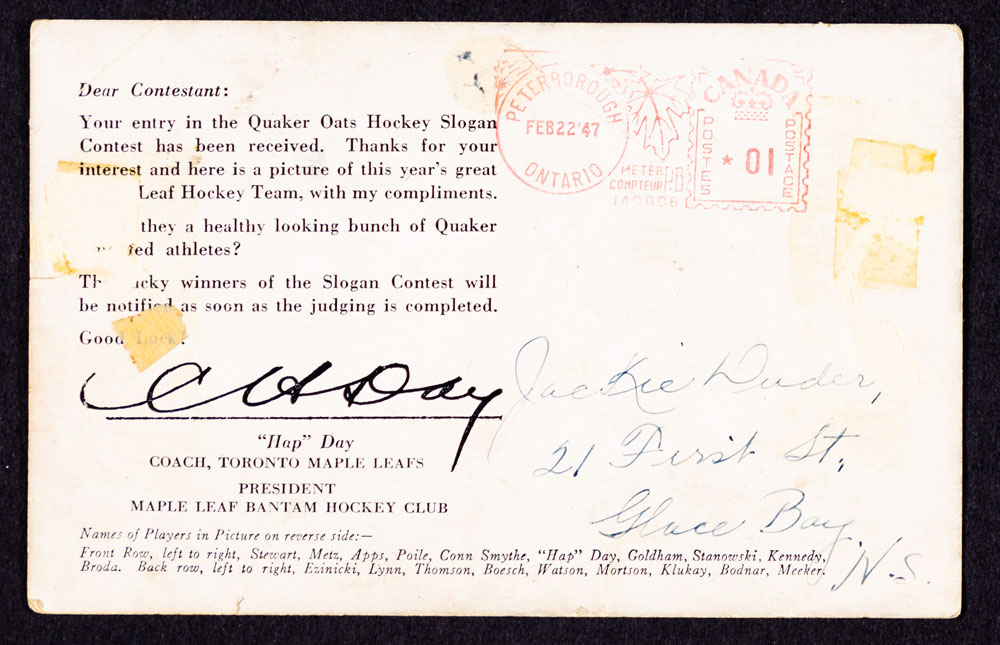 Dear Contestant:
Your entry in the Quaker Oats Hockey Slogan
Contest has been received. Thanks for your
interest and here is a picture of this year's great
Leaf Hockey Team, with my compliments.
they a healthy looking bunch of Quaker
athletes?
winners of the Slogan Contest will
be notified as soon as the judging is completed.
Good Luck!
C H Day
"Hap" Day
COACH, TORONTO MAPLE LEAFS
PRESIDENT
MAPLE LEAF BANTAM HOCKEY CLUB
Names of Players in Picture on reverse side:—
Front Row, left to right, Stewart, Metz, Apps, Poile, Conn Smythe, "Hap" Day, Goldham, Stanowski, Kennedy,
Broda. Back row, left to right, Ezinicki, Lynn, Thomson, Boesch, Watson, Mortson, Klukay, Bodnar, Meeker.
PETERBOROUGH
FEB 22 '47
ONTARIO
METER
COMPTEUR
CANADA
POSTES
* 01
POSTAGE
Jackie Duder,
21 First St.,
Glace Bay,
N.S.